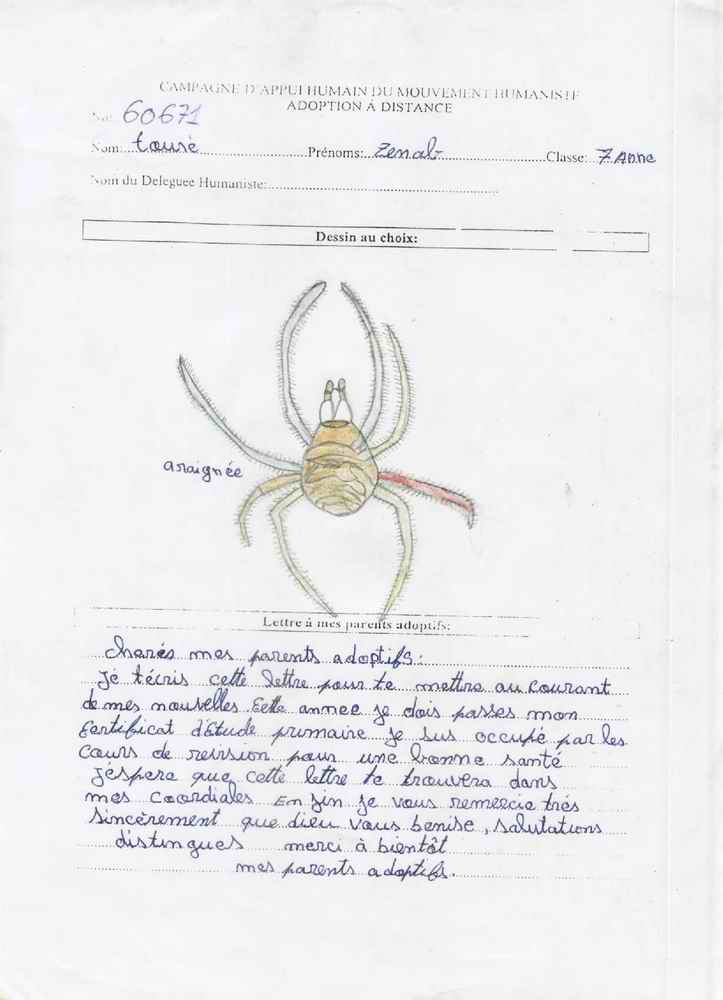 CAMPAGNE D'APPUI HUMAIN DU MOUVEMENT HUMANISTE
ADOPTION À DISTANCE
No: 60671
Nom: tourè Prénoms: Zenab Classe: 7 Anne
Nom du Deleguee Humaniste:
Dessin au choix:
araignée
Lettre à mes parents adoptifs:
charés mes parents adoptifs:
Je técris cette lettre pour te mettre au courant
de mes nouvelles Cette annee je dois passes mon
Certificat d'Etude primaire je sus occupé par les
Cours de revision pour une bonne santé
J'éspera que cette lettre te trouvera dans
mes coordiales En fin je vous remercie trés
Sincèrement que dieu vous benise, salutations
distingues merci à bientôt
mes parents adoptifs.